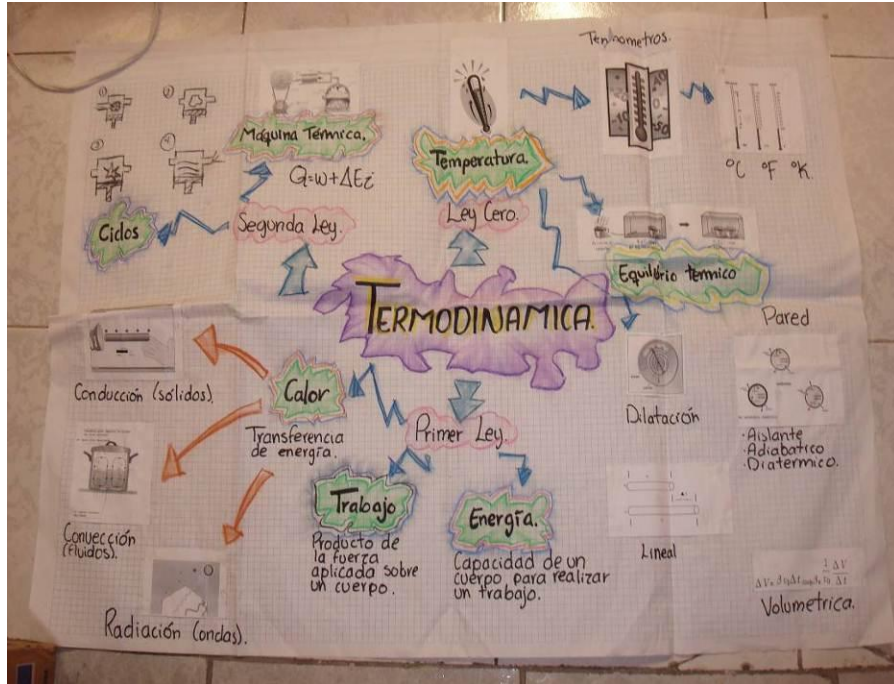 Termómetros.
① ②
③ ④
Máquina Térmica.
Q=w+ΔEi
Temperatura.
°C °F °K
Ciclos
Segunda Ley.
Ley Cero.
Equilibrio térmico
TERMODINAMICA.
Pared
Conducción (sólidos).
Calor
Transferencia
de energía.
Primer Ley.
Dilatación
·Aislante
·Adiabatico
·Diatermico.
Trabajo
Producto de
la fuerza
aplicada sobre
un cuerpo.
Energía.
Capacidad de un
cuerpo para realizar
un trabajo.
Convección
(fluidos).
Lineal
Volumetrica.
Radiación (ondas).